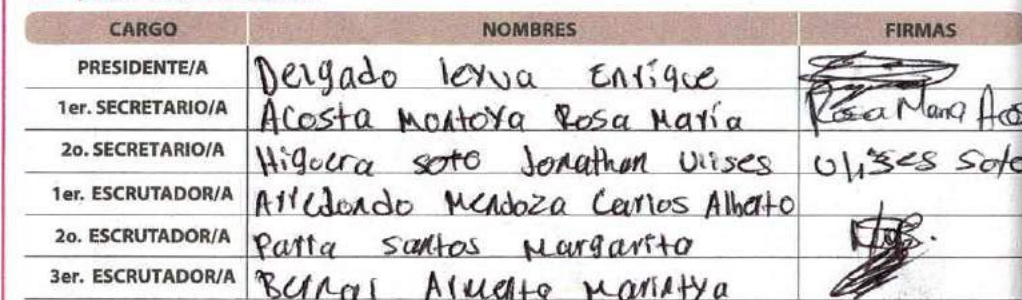 CARGO NOMBRES FIRMAS
PRESIDENTE/A Delgado leyva Enrique
1er. SECRETARIO/A Acosta Montoya Rosa María Rosa Maria Aco
2o. SECRETARIO/A Higuera soto Jonathan Ulises Ulises Soto
1er. ESCRUTADOR/A Arredondo Mendoza Carlos Alberto
2o. ESCRUTADOR/A Parra santos Margarita
3er. ESCRUTADOR/A Bernal